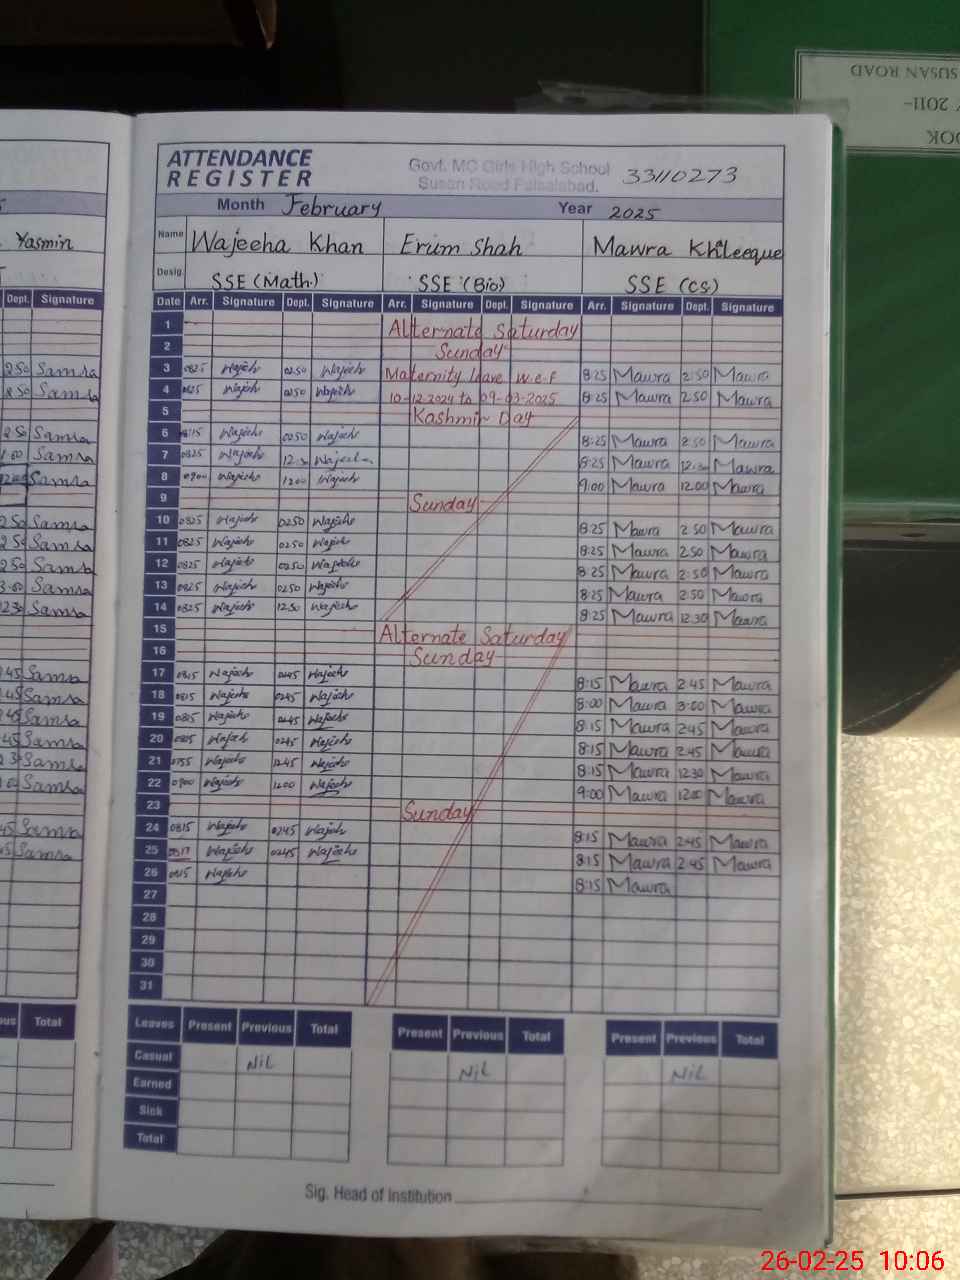 SUSAN ROAD
2011-
OOK
ATTENDANCE
REGISTER
Govt. MC Girls High School
Susan Road Faisalabad.
33110273
Month February Year 2025
Yasmin
Name Wajeeha Khan Erum Shah Mawra Khleeque
Desig. SSE (Math.) SSE (Bio) SSE (CS)
Dept. Signature
Date Arr. Signature Dept. Signature Arr. Signature Dept. Signature Arr. Signature Dept. Signature
1 Alternate Saturday
2 Sunday
3 0825 Wajeeh 0250 Wajeeh Maternity leave w.e.f 8:25 Mawra 2:50 Mawra
4 0825 Wajeeh 0250 Wajeeh 10-12-2024 to 09-03-2025 8:25 Mawra 2:50 Mawra
5 Kashmir Day
6 8:15 Wajeeh 0250 Wajeeh 8:25 Mawra 2:50 Mawra
7 0825 Wajeeh 12:30 Wajeeha 8:25 Mawra 12:30 Mawra
8 0900 Wajeeh 1200 Wajeeh 9:00 Mawra 12.00 Mawra
9 Sunday
10 0825 Wajeeh 0250 Wajeeh 8:25 Mawra 2 50 Mawra
11 0825 Wajeeh 0250 Wajeeh 8:25 Mawra 2:50 Mawra
12 0825 Wajeeh 0250 Wajeeh 8:25 Mawra 2:50 Mawra
13 0825 Wajeeh 0250 Wajeeh 8:25 Mawra 2:50 Mawra
14 0825 Wajeeh 1230 Wajeeh 8:25 Mawra 12.30 Mawra
15 Alternate Saturday
16 Sunday
17 0815 Wajeeh 0245 Wajeeh 8:15 Mawra 2:45 Mawra
18 0815 Wajeeh 0245 Wajeeh 8:00 Mawra 3:00 Mawra
19 0815 Wajeeh 0245 Wajeeh 8:15 Mawra 2:45 Mawra
20 0815 Wajeeh 0245 Wajeeh 8:15 Mawra 2:45 Mawra
21 0755 Wajeeh 1245 Wajeeh 8:15 Mawra 12:30 Mawra
22 0900 Wajeeh 1200 Wajeeh 9:00 Mawra 12:00 Mawra
23 Sunday
24 0815 Wajeeh 0245 Wajeeh 8:15 Mawra 2:45 Mawra
25 0817 Wajeeh 0245 Wajeeh 8:15 Mawra 2:45 Mawra
26 0815 Wajeeh 8:15 Mawra
27
28
29
30
31
Total
Leaves Present Previous Total Present Previous Total Present Previous Total
Casual Nil Nil Nil
Earned
Sick
Total
Sig. Head of Institution
26-02-25 10:06